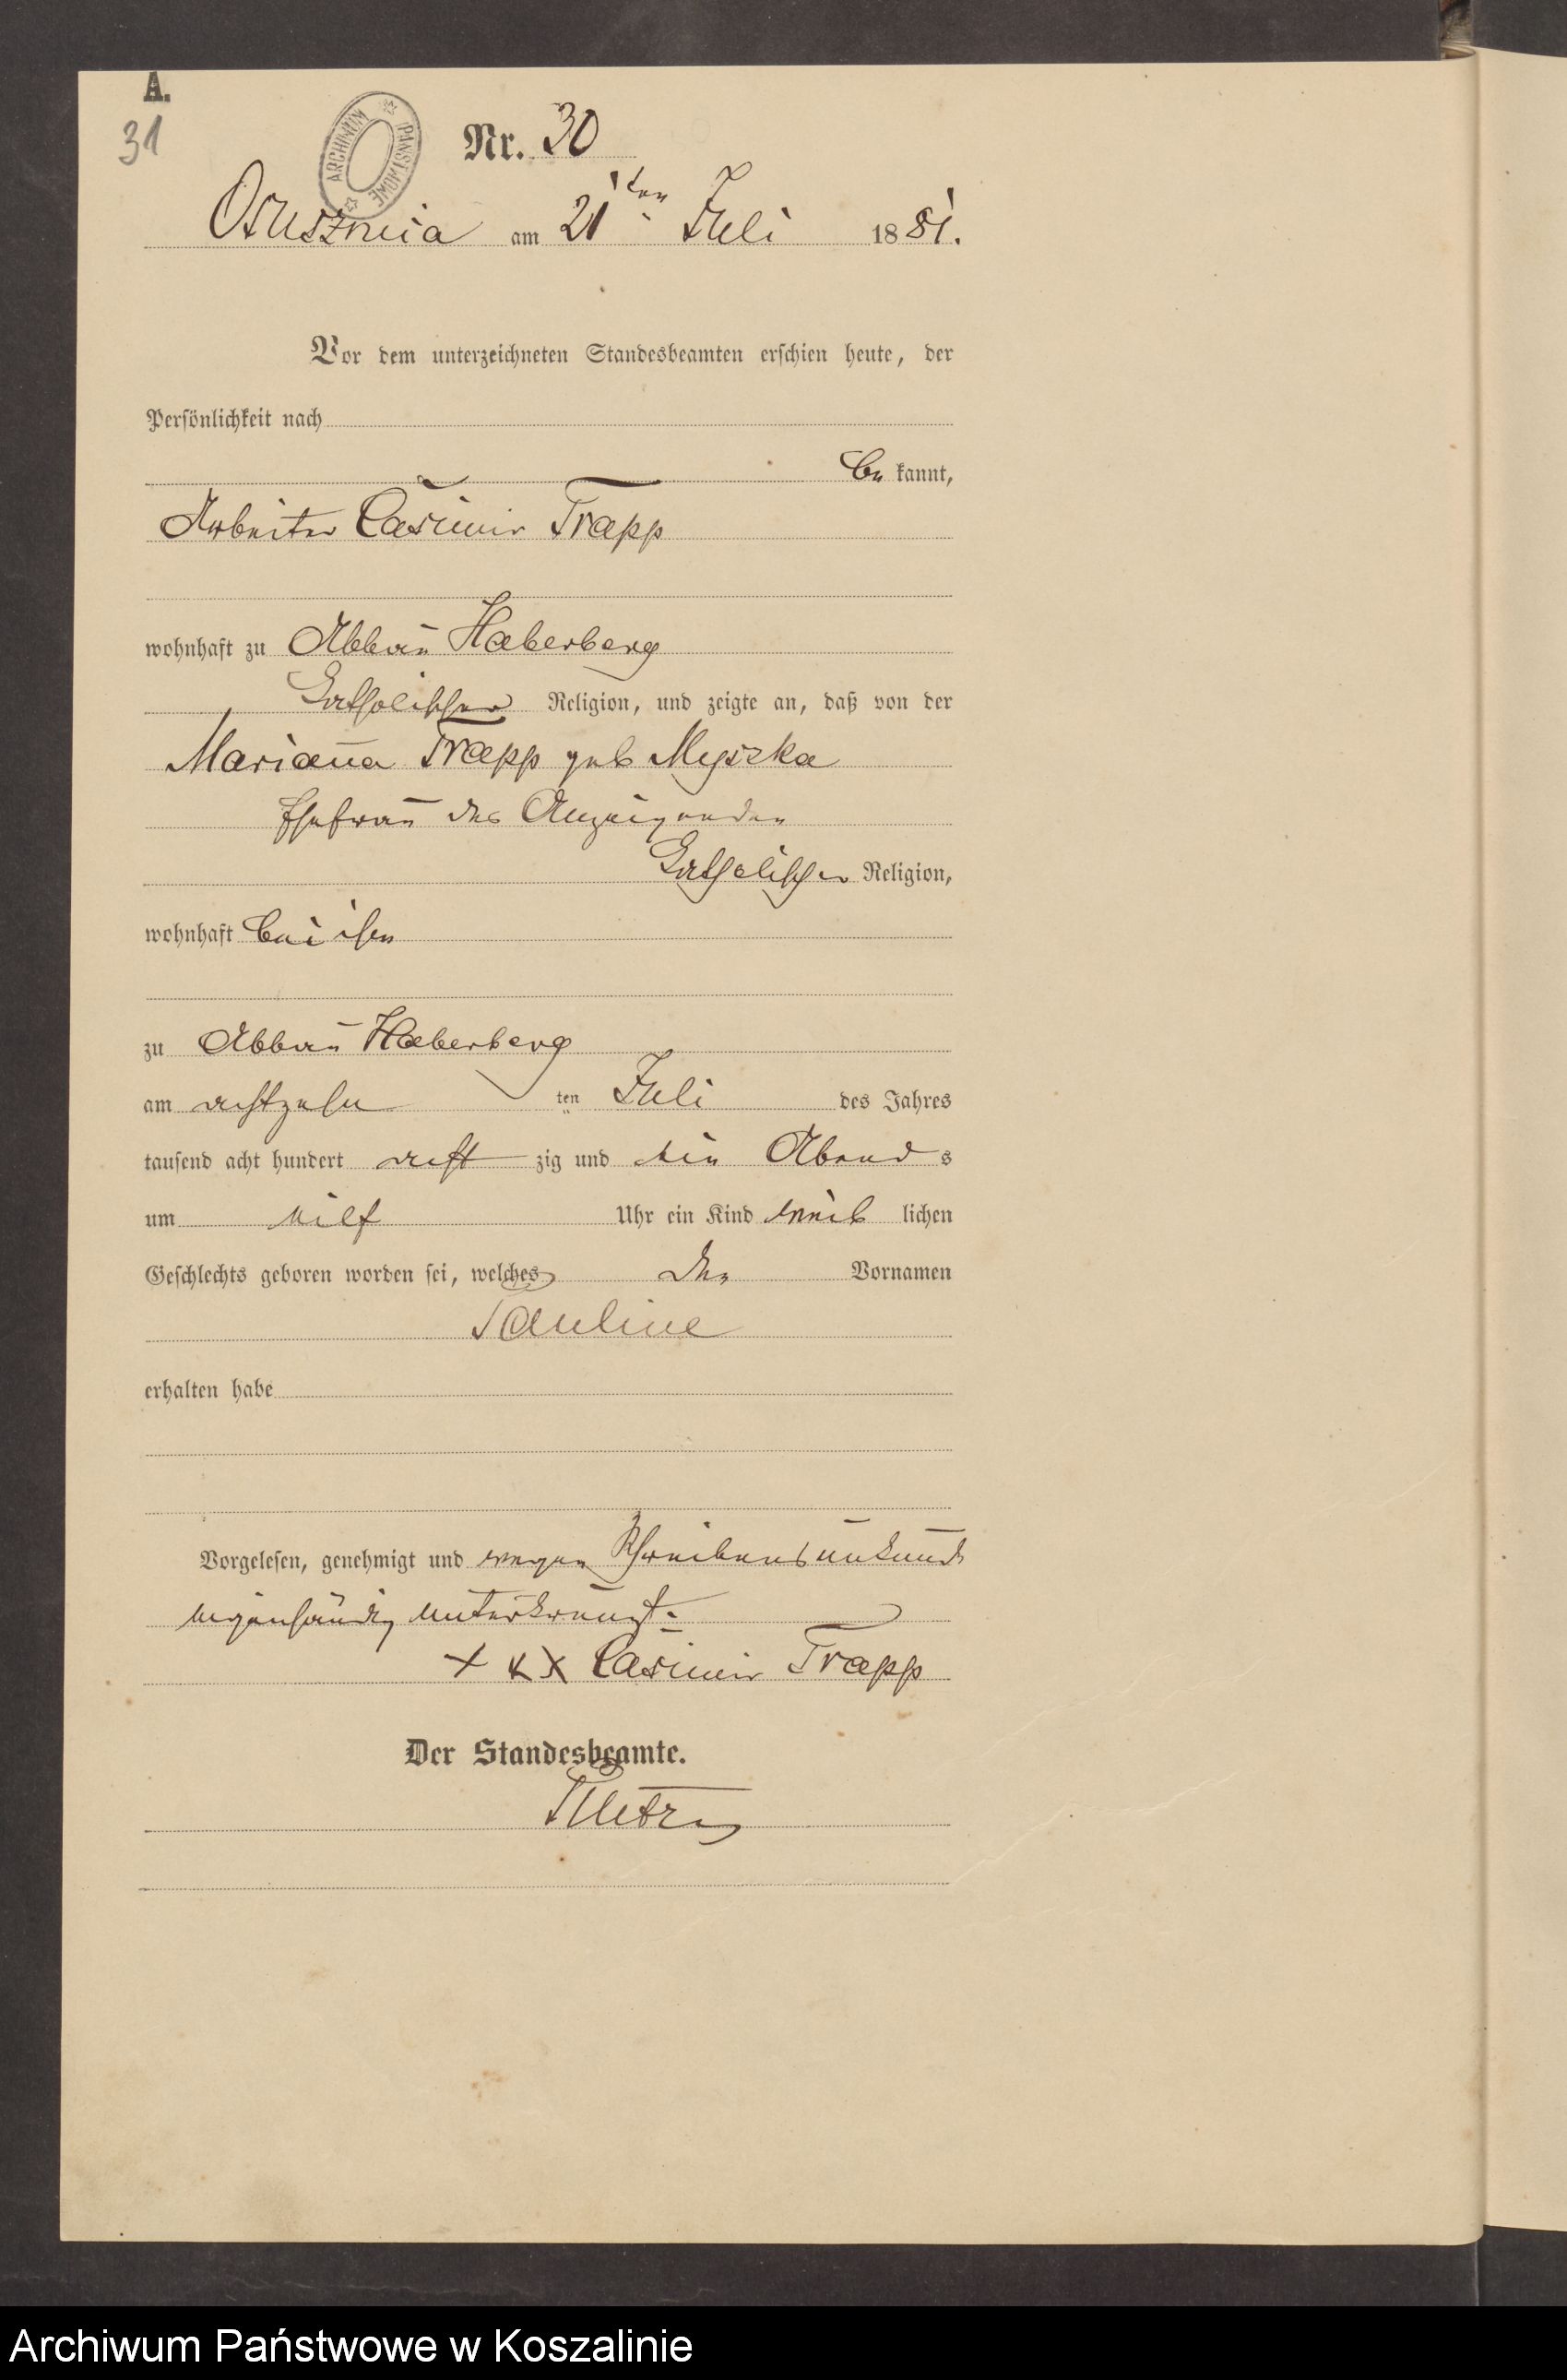 A.
31
ARCHIWUM PAŃSTWOWE
Nr. 30
Osusznica am 21ten Juli 1881.
Vor dem unterzeichneten Standesbeamten erschien heute, der
Persönlichkeit nach
be kannt,
Arbeiter Casimir Trapp
wohnhaft zu Abbau Haberberg
katholischer Religion, und zeigte an, daß von der
Marianna Trapp geb Myszka
Ehefrau des Anzeigenden
katholischer Religion,
wohnhaft bei ihm
zu Abbau Haberberg
am achtzehn ten Juli des Jahres
tausend acht hundert acht zig und ein Abend s
um eilf Uhr ein Kind weib lichen
Geschlechts geboren worden sei, welches den Vornamen
Pauline
erhalten habe
Vorgelesen, genehmigt und wegen Schreibensunkunde
eigenhändig unterkreuzt.
+ + + Casimir Trapp
Der Standesbeamte.
Archiwum Państwowe w Koszalinie